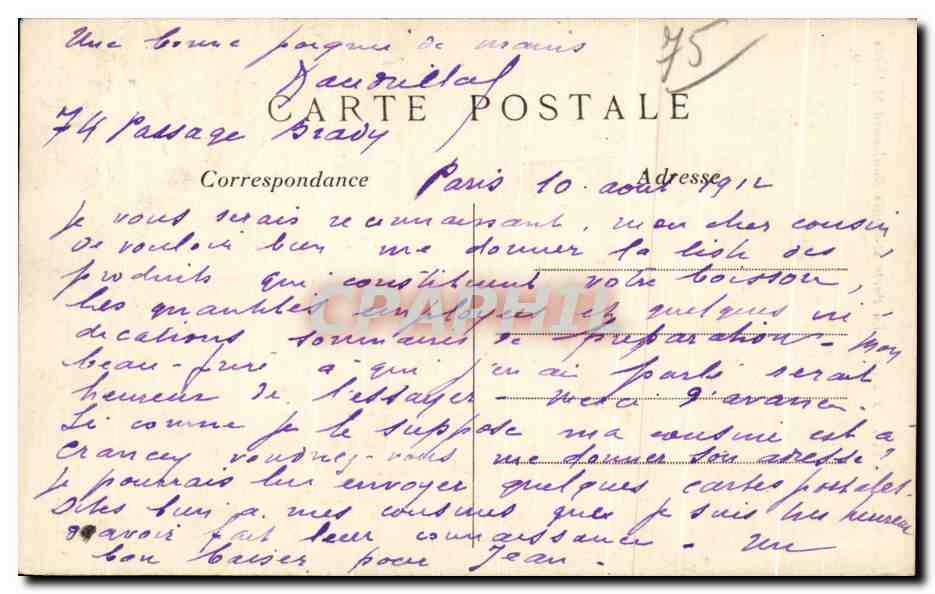 Une bonne poignée de mains
75
CARTE POSTALE
74 Passage Brady
Correspondance
Adresse
Paris 10 août 1912
Je vous serais reconnaissant, mon cher cousin
de vouloir bien me donner la liste des
produits qui constituent votre boisson,
les quantités employées et quelques in-
dications sommaires de préparation - Mon
beau-frère à qui j'en ai parlé serait
heureux de l'essayer - Merci d'avance.
Si comme je le suppose ma cousine est à
Crancey voudriez-vous me donner son adresse?
Je pourrais lui envoyer quelques cartes postales.
Dites bien à mes cousines que je suis très heureux
d'avoir fait leur connaissance - Un
bon baiser pour Jean.
CPAPHIL